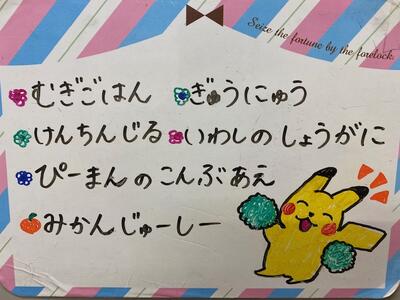 Seize the fortune by the forelock.
むぎごはん ぎゅうにゅう
けんちんじる いわしのしょうがに
ぴーまんのこんぶあえ
みかんじゅーしー